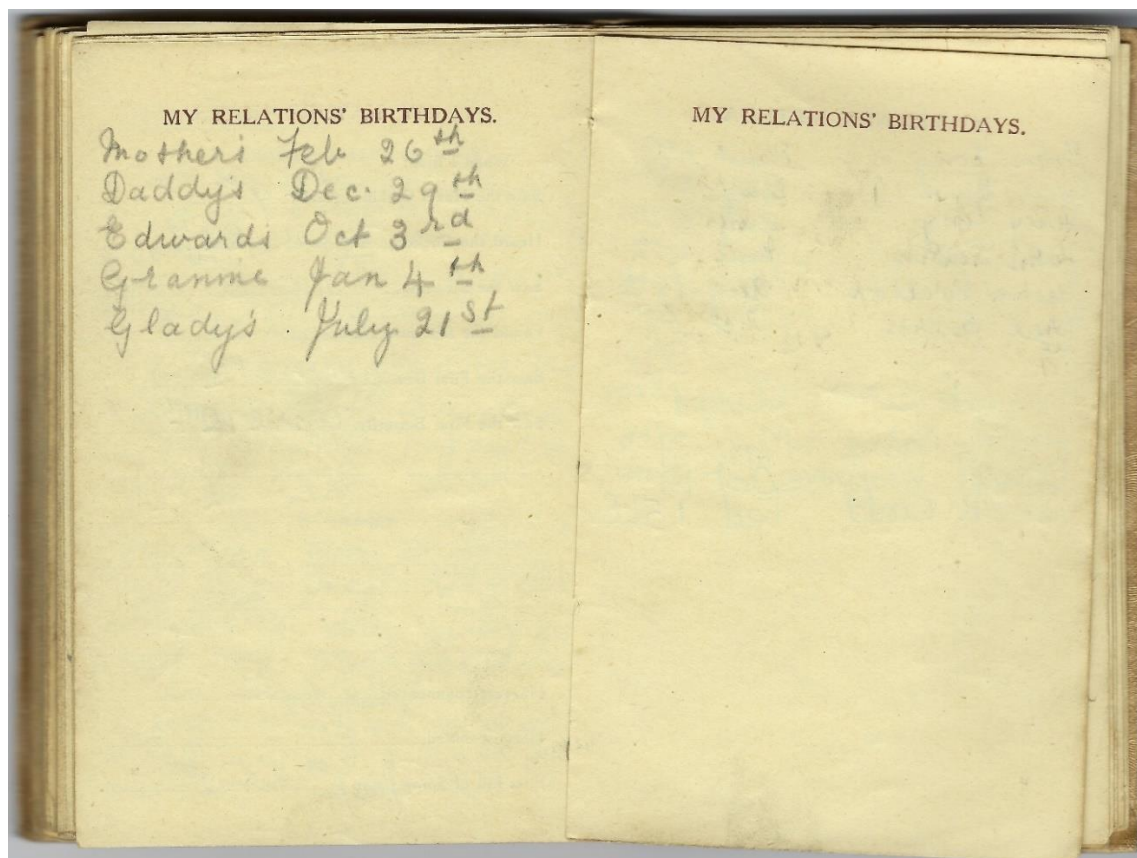 MY RELATIONS' BIRTHDAYS.
Mother's Feb 26th
Daddy's Dec. 29th
Edwards Oct 3rd
Grannie Jan 4th
Glady's July 21st
MY RELATIONS' BIRTHDAYS.